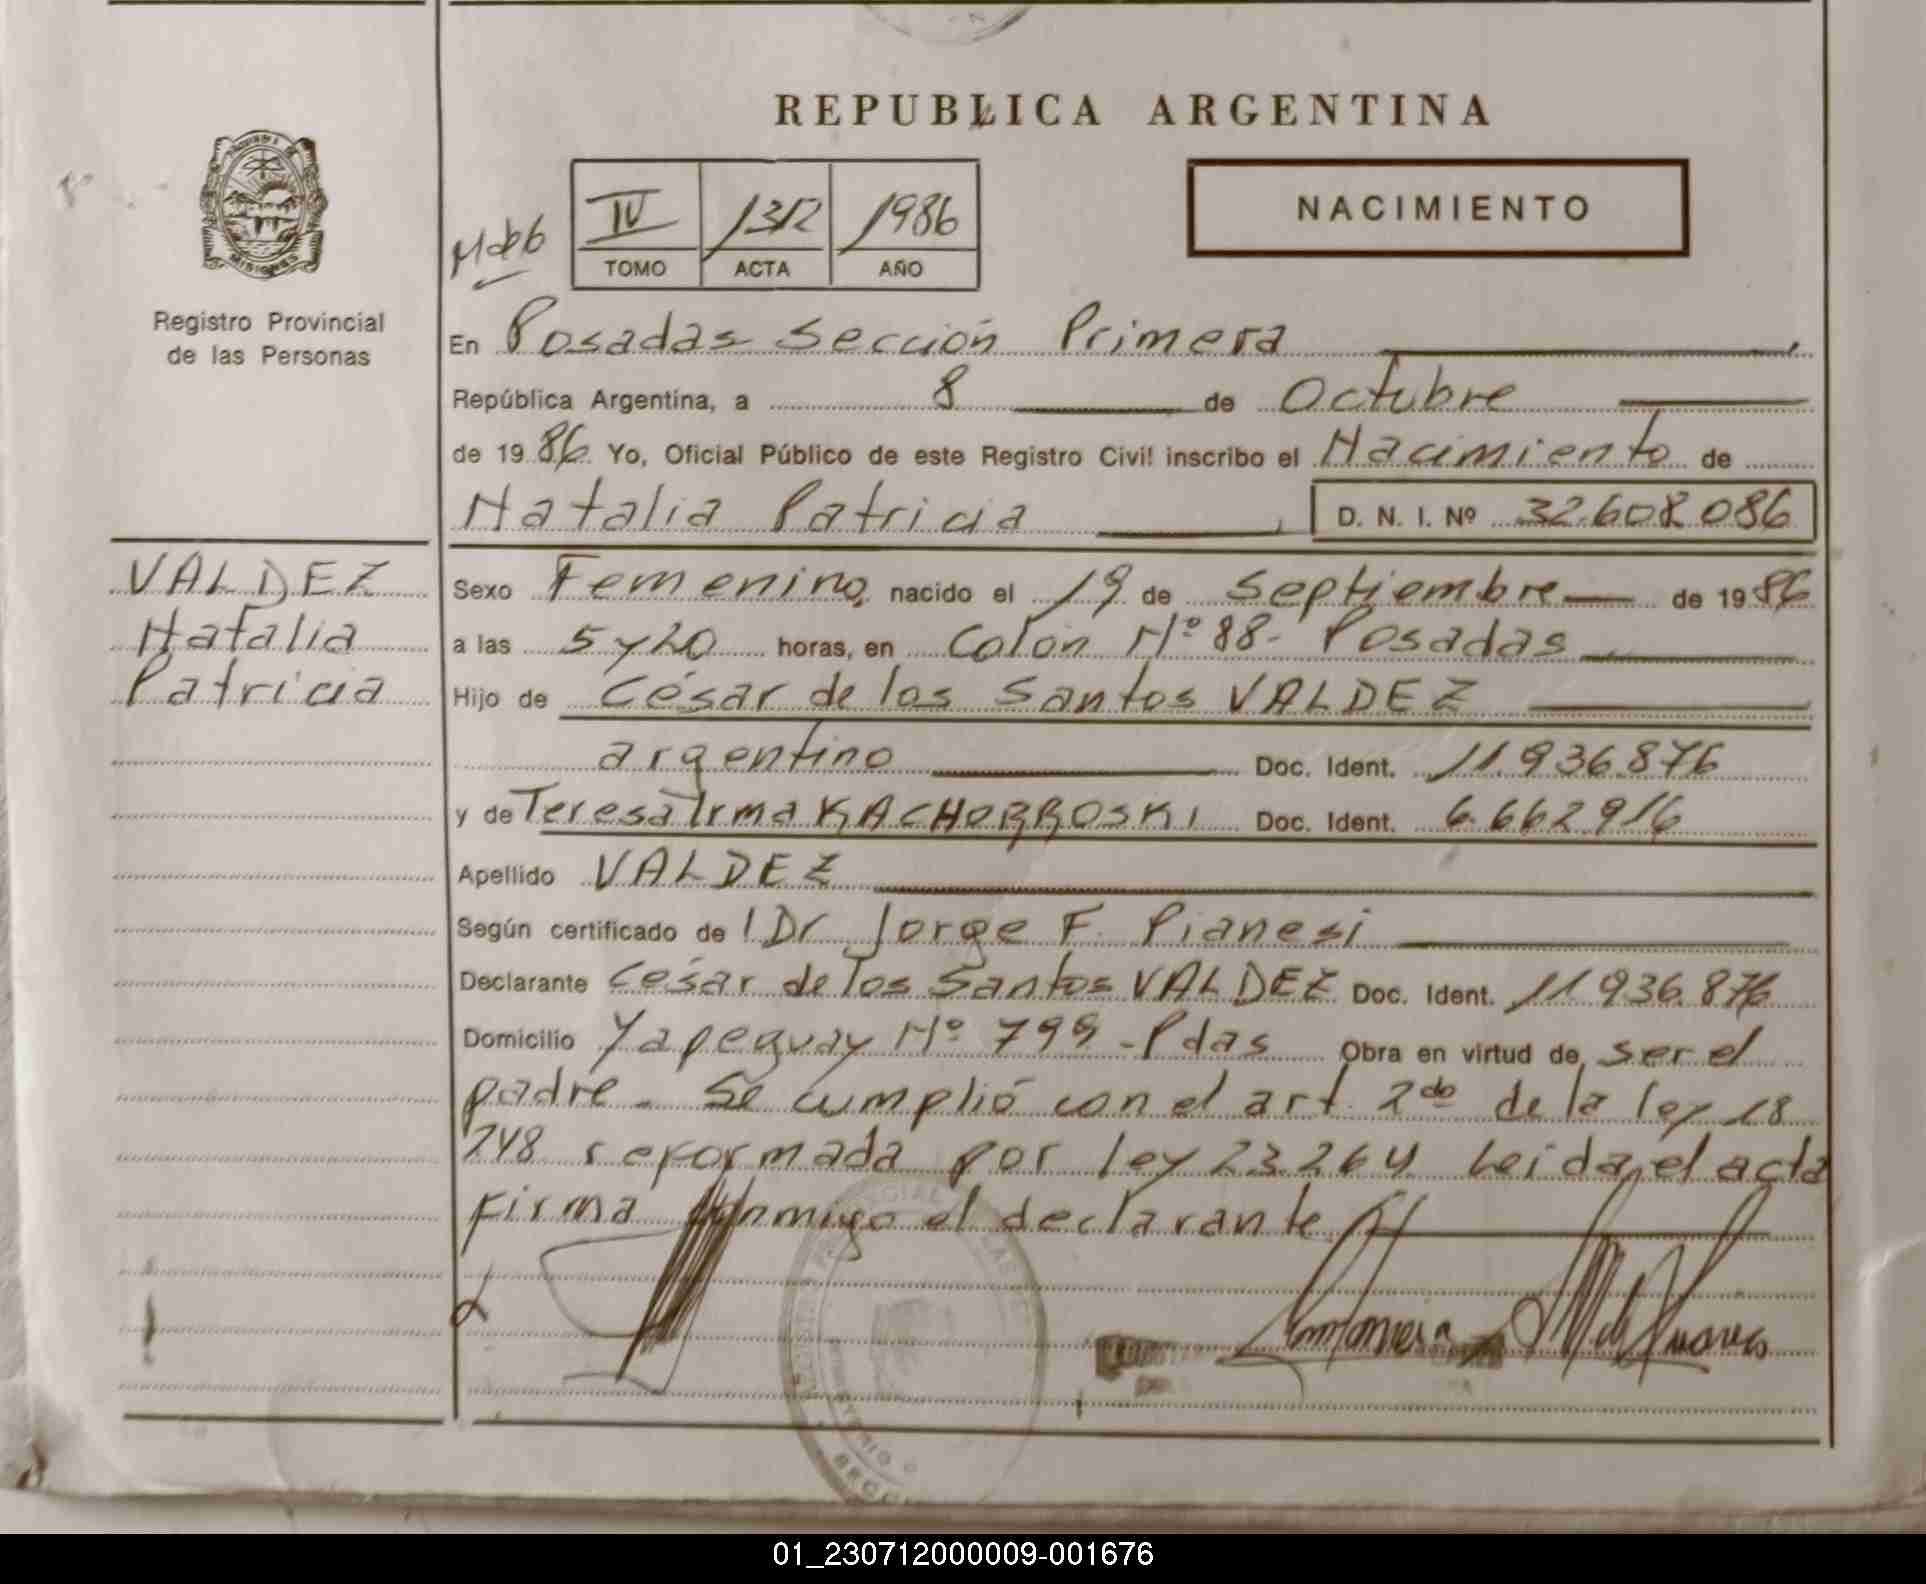 REPUBLICA ARGENTINA
MISIONES
Registro Provincial
de las Personas
IV 1312 1986
TOMO ACTA AÑO
NACIMIENTO
En Posadas Sección Primera
República Argentina, a 8 de Octubre
de 1986. Yo, Oficial Público de este Registro Civil inscribo el Nacimiento de
Natalia Patricia D. N. I. Nº 32.608.086
VALDEZ
Natalia
Patricia
Sexo Femenino, nacido el 19 de Septiembre de 1986
a las 5 y 20 horas, en Colón Nº 88- Posadas
Hijo de César de los Santos VALDEZ
argentino Doc. Ident. 11.936.876
y de Teresa Irma KACHORROSKI Doc. Ident. 6.662.916
Apellido VALDEZ
Según certificado de l Dr Jorge F. Pianesi
Declarante César de los Santos VALDEZ Doc. Ident. 11.936.876
Domicilio Yapeguay Nº 799 - Pdas Obra en virtud de ser el
padre - Se cumplió con el art. 2do de la ley 18
248 reformada por ley 23.264 Leida el acta
firma conmigo el declarante
01_230712000009-001676